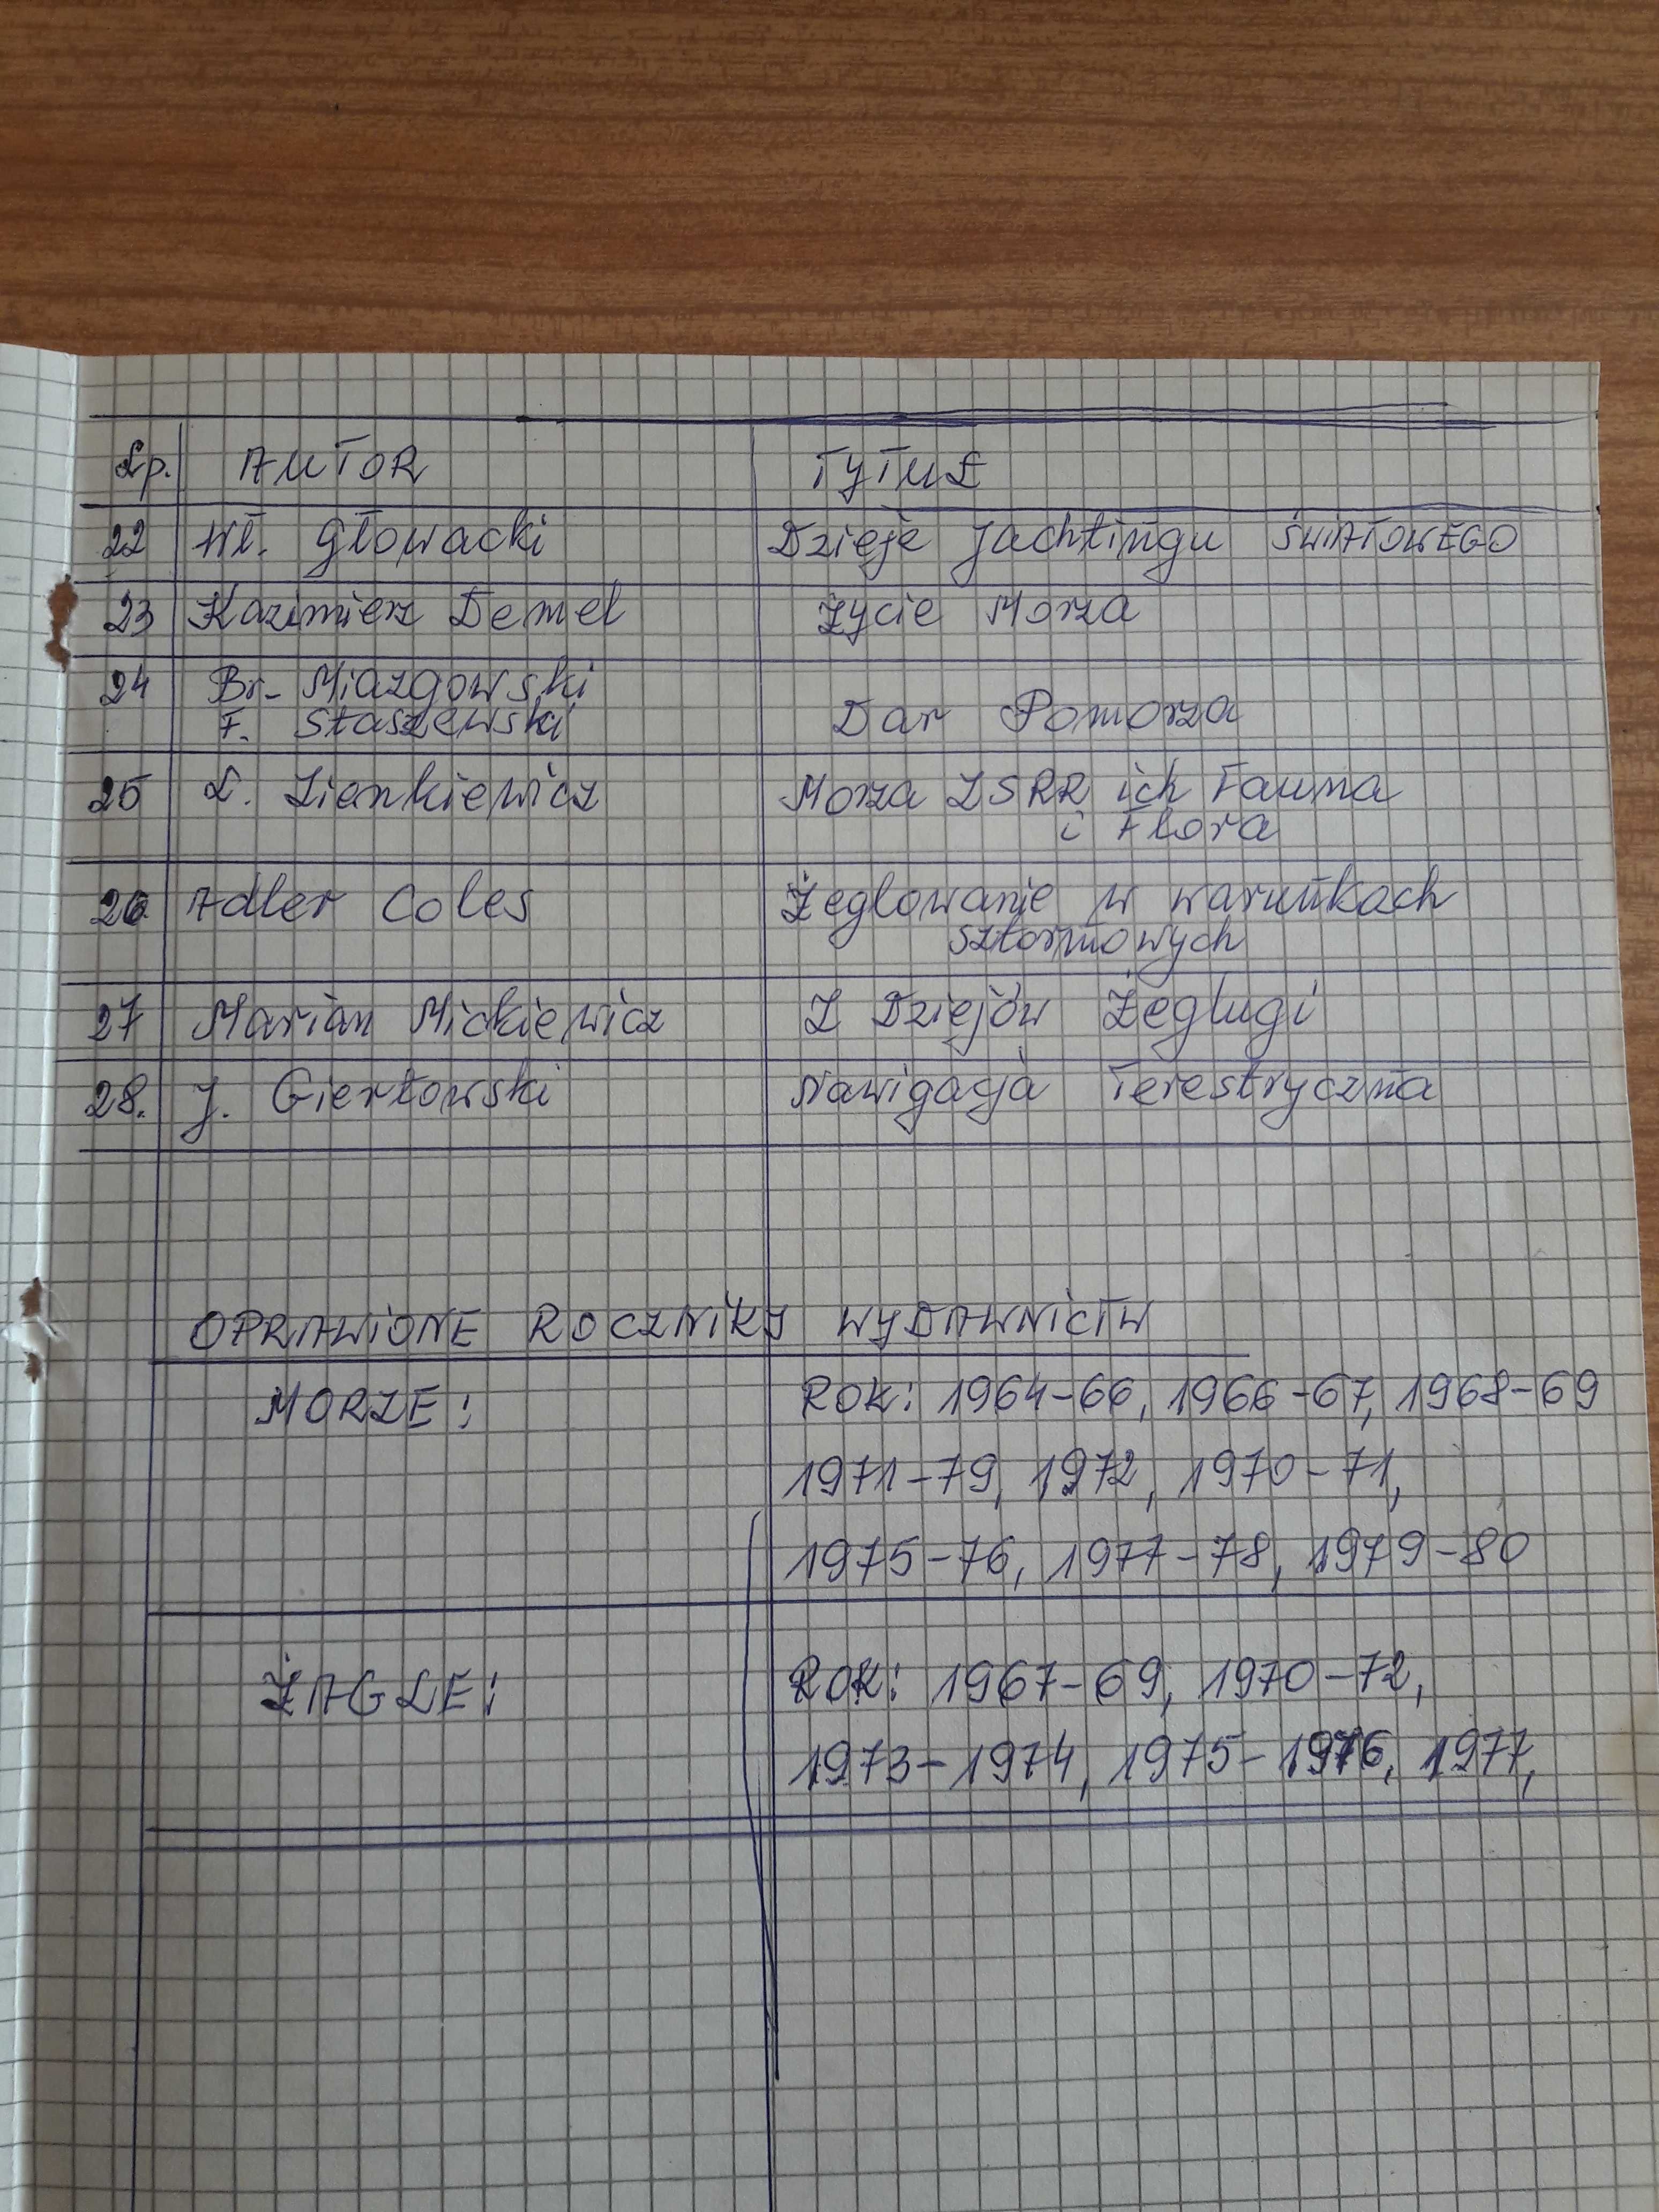 Lp. AUTOR TYTUŁ
22 Wł. Głowacki Dzieje Jachtingu ŚWIATOWEGO
23 Kazimierz Demel Życie Morza
24 Br. Miazgowski
F. Staszewski Dar Pomorza
25 L. Zienkiewicz Morza ZSRR ich Fauna
i Flora
26. Adler Coles Żeglowanie w warunkach
sztormowych
27 Marian Mickiewicz Z Dziejów Żeglugi
28. J. Giertowski Nawigacja Terestryczna
OPRAWIONE ROCZNIKI WYDAWNICTW
MORZE: ROK: 1964-66, 1966-67, 1968-69
1971-79, 1972, 1970-71,
1975-76, 1977-78, 1979-80
ŻAGLE: ROK: 1967-69, 1970-72,
1973-1974, 1975-1976, 1977,